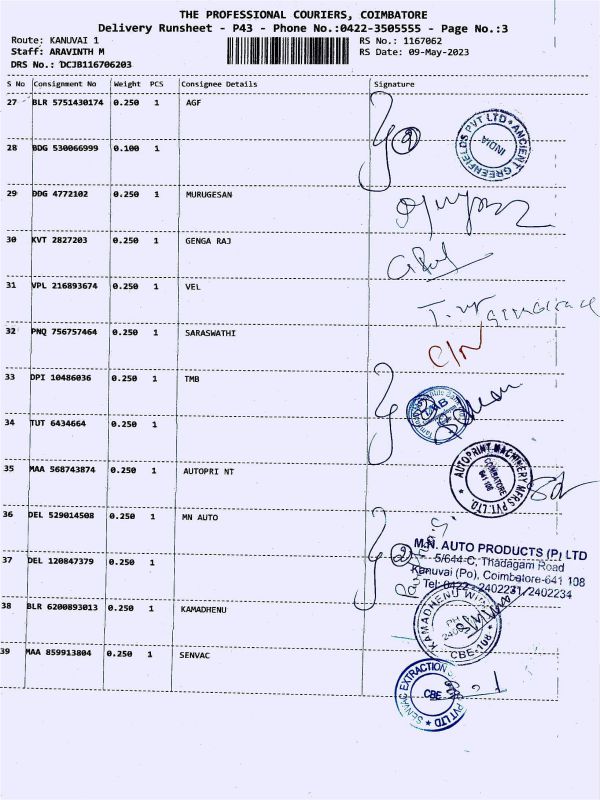 THE PROFESSIONAL COURIERS, COIMBATORE
Delivery Runsheet - P43 - Phone No.:0422-3505555 - Page No.:3
Route: KANUVAI 1 RS No.: 1167062
Staff: ARAVINTH M RS Date: 09-May-2023
DRS No.: DCJB116706203
S No Consignment No Weight PCS Consignee Details Signature
27 BLR 5751430174 0.250 1 AGF
ANCIENT GREENFIELDS PVT LTD
INDIA
2
28 BDG 530066999 0.100 1
29 DDG 4772102 0.250 1 MURUGESAN
30 KVT 2827203 0.250 1 GENGA RAJ
31 VPL 216893674 0.250 1 VEL
32 PNQ 756757464 0.250 1 SARASWATHI
C/N
33 DPI 10486036 0.250 1 TMB
34 TUT 6434664 0.250 1
35 MAA 568743874 0.250 1 AUTOPRI NT
AUTOPRINT MACHINERY MFRS PVT. LTD.
COIMBATORE
641 108
36 DEL 529014508 0.250 1 MN AUTO
2
M.N. AUTO PRODUCTS (P) LTD
5/644-C, Thadagam Road
Kanuvai (Po), Coimbatore-641 108
Tel: 0422 - 2402231/2402234
37 DEL 120847379 0.250 1
38 BLR 6200893013 0.250 1 KAMADHENU
KAMADHENU
CBE-108
39 MAA 859913804 0.250 1 SENVAC
SENVAC EXTRACTION PVT LTD
CBE